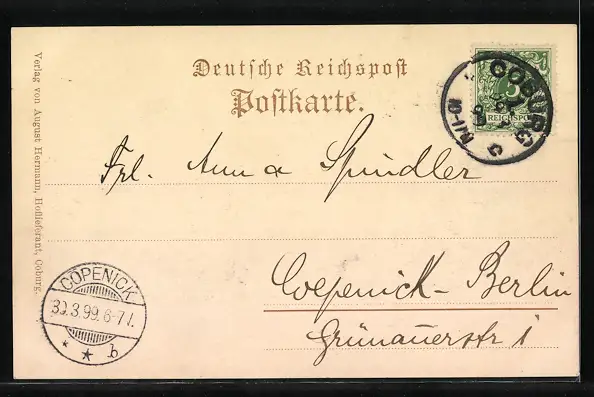 Deutsche Reichspost
Postkarte.
COBURG
10-11V
C
5
REICHSPOST
Frl. Anna Spindler
Coepenick-Berlin
Grünauerstr 1
COPENICK
30.3.99.6-7 N.
* * b
Verlag von August Hermann, Hoflieferant, Coburg.